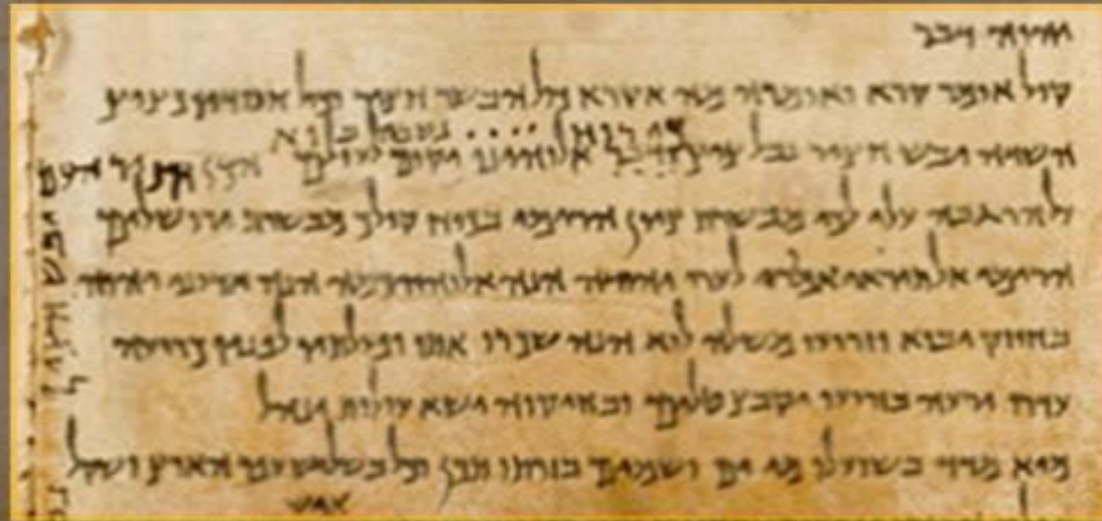 יהוה דבר
קול אומר קרא ואומרה מה אקרא כול הבשר חציר וכול חסדיו כציץ
כי רוח •••• נשבה בוא
השדה יבש חציר נבל ציץ ודבר אלוהינו יקום לעולם הכן חציר העם
הר גבה עלי לכי מבשרת ציון הרימי בכוח קולך מבשרת ירושלים
הרימי אל תיראי אמרי לערי יהודה הנה אלוהיכמה הנה אדוני יהוה
בחוזק יבוא וזרועו משלה לוא הנה שכרו אתו ופעלתיו לפניו כרועה
עדרו ירעה בזרועו יקבץ טלים ובחיקוה ישא עולות ינהל
מיא מדד בשועלו מי ים ושמים בזרתו תכן וכל בשליש עפר הארץ ושקל
יבש חציר